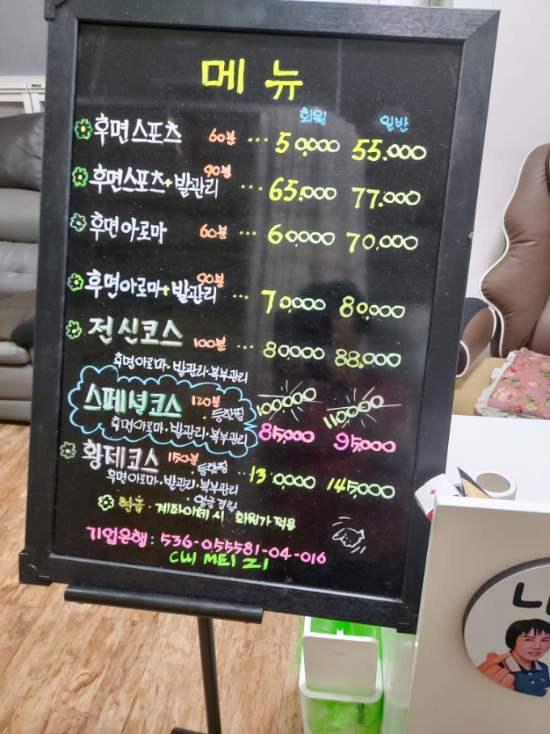 메뉴
회원 일반
후면스포츠 60분 ... 50,000 55.000
후면스포츠+발관리 90분 ... 65.000 77.000
후면아로마 60분 ... 60,000 70,000
후면아로마+발관리 90분 ... 70,000 80,000
전신코스 100분 ... 80000 88.000
후면아로마·발관리·복부관리
스페셜코스 120분 등찜질 100,000 110000
후면아로마·발관리·복부관리 85,000 95,000
황제코스 150분 등찜질 ... 130,000 145,000
후면아로마·발관리·복부관리
얼굴경락
현금·계좌이체시 회원가 적용
기업은행: 536-055581-04-016
CUI MEI ZI